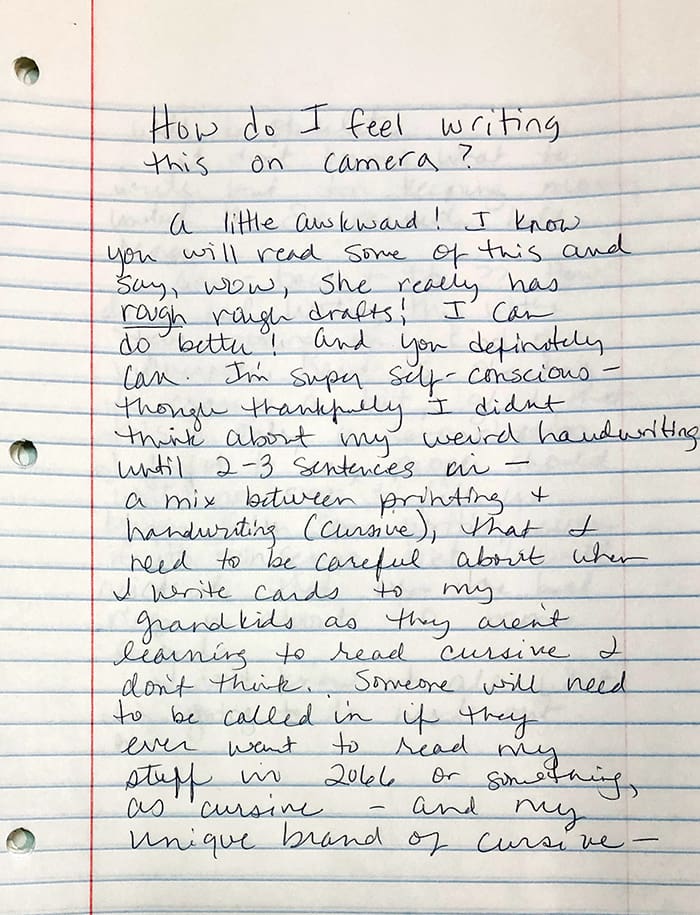 How do I feel writing
this on camera?
a little awkward! I know
you will read some of this and
say, wow, she really has
rough rough drafts! I can
do better! and you definitely
can. I'm super self-conscious –
though thankfully I didn't
think about my weird handwriting
until 2-3 sentences in –
a mix between printing +
handwriting (cursive), that I
need to be careful about when
I write cards to my
grandkids as they aren't
learning to read cursive I
don't think. Someone will need
to be called in if they
ever want to read my
stuff in 2066 or something,
as cursive – and my
unique brand of cursive –